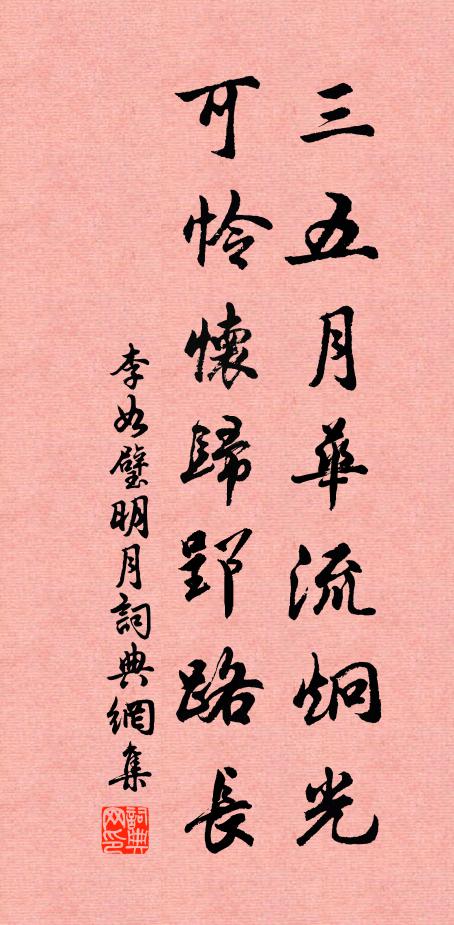 三五月華流炯光
可怜懷歸郢路長
李如璧明月詞典網集
詞典网印